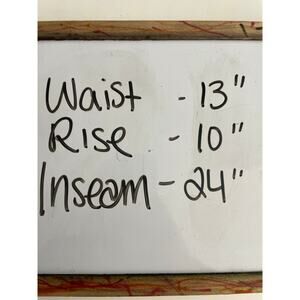 Waist - 13"
Rise - 10"
Inseam - 24"